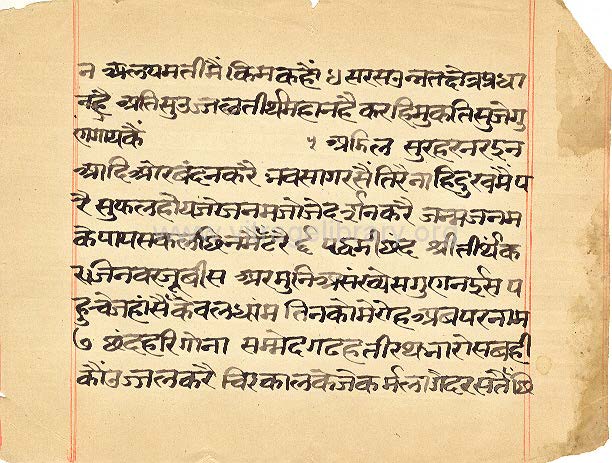 न अलपमती मै किम कहौं ४ सरस उन्नत क्षेत्र प्रधा
न है अति सु उज्जल तीर्थ महान है करहि मुकति सु जे गु
ण गायकैं ५ अडिल सुर हर नर इन
आदि ओर बंदन करै भवसागर सैं तिरै नाहि दुख मै प
रै सुफल होय जो जनम जो जे दर्शन करै जन्म जनम
के पाप सकल छिन मै टरै ६ पद्धमी छंद श्री तीर्थक
रा जिनवर जू बीस अर मुनि असंख्ये स गुणन ईस प
हुचे जहां सैं केवल धाम तिनको मेरो है अब परनाम
७ छंद हरिगीना सम्मेद गढ है तीरथ भारी सबही
कौं उज्जल करै चिरकाल के जे कर्म लागे दरस तैं छि
www. library.org